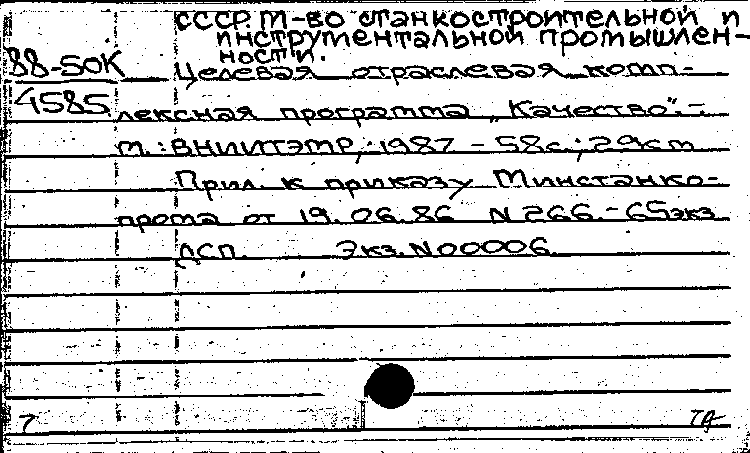 СССР. М-во станкостроительной и
инструментальной промышлен-
ности.
88-50К Целевая отраслевая комп-
4585 лексная программа „Качество".-
М.: ВНИИТЭМР, 1987 - 58с.; 29см
Прил. к приказу Минстанко-
прома от 19.06.86 N 266.-65экз
ДСП. Экз. N00006
7